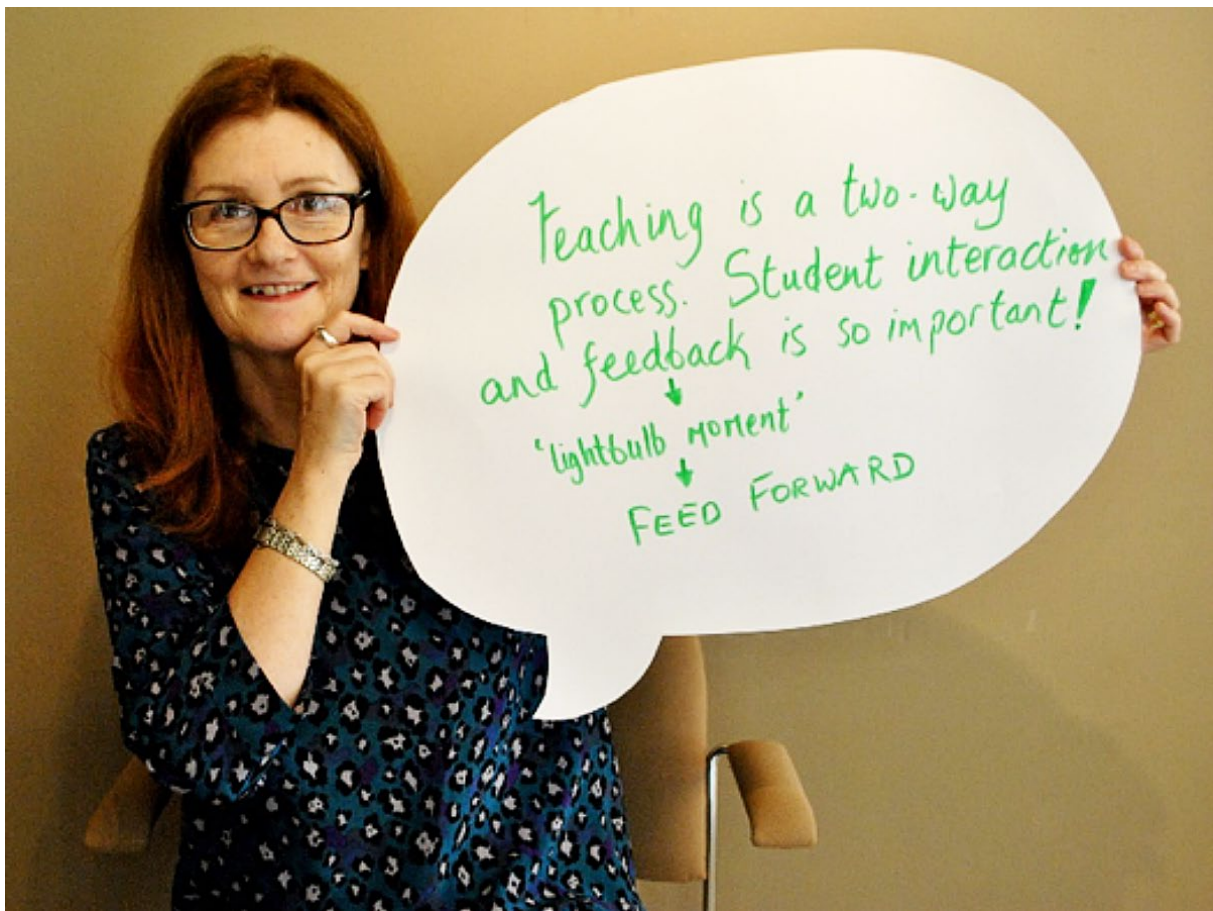 Teaching is a two-way
process. Student interaction
and feedback is so important!
↓
'lightbulb MOMENT'
↓
FEED FORWARD